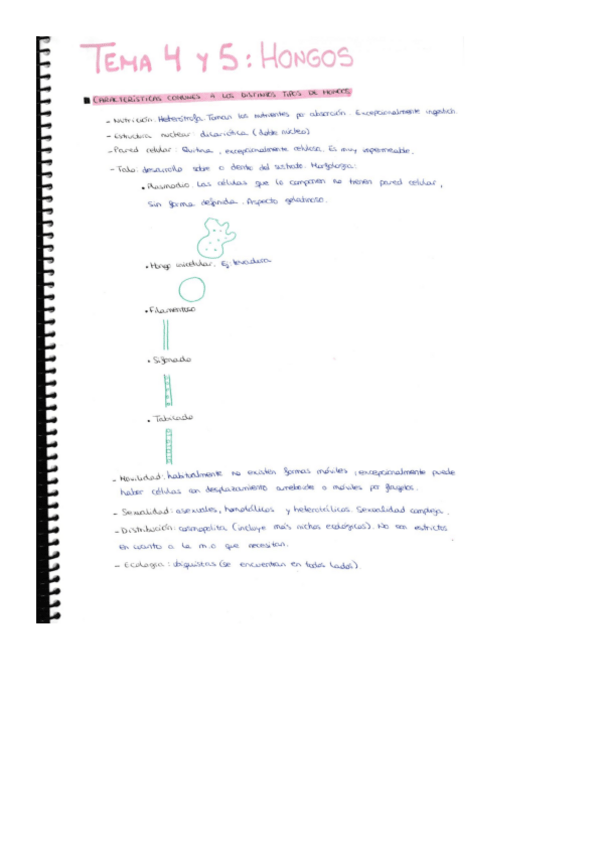 TEMA 4 Y 5: HONGOS
CARACTERÍSTICAS COMUNES A LOS DISTINTOS TIPOS DE HONGOS
- Nutrición: Heterótrofa. Toman los nutrientes por absorción. Excepcionalmente ingestión.
- Estructura nuclear: dicariótica (doble núcleo)
- Pared celular: Quitina, excepcionalmente celulosa. Es muy impermeable.
- Talo: desarrollo sobre o dentro del sustrato. Morfología:
• Plasmodio. Las células que lo componen no tienen pared celular,
sin forma definida. Aspecto gelatinoso.
• Hongo unicelular. Ej: levadura
• Filamentoso
• Sifonado
• Tabicado
- Movilidad: habitualmente no existen formas móviles, excepcionalmente puede
haber células con desplazamiento ameboide o móviles por flagelos.
- Sexualidad: asexuales, homotálicos y heterotálicos. Sexualidad compleja.
- Distribución: cosmopolita (incluye más nichos ecológicos). No son estrictos
en cuanto a la m.o que necesitan.
- Ecología: ubiquistas (se encuentran en todos lados).